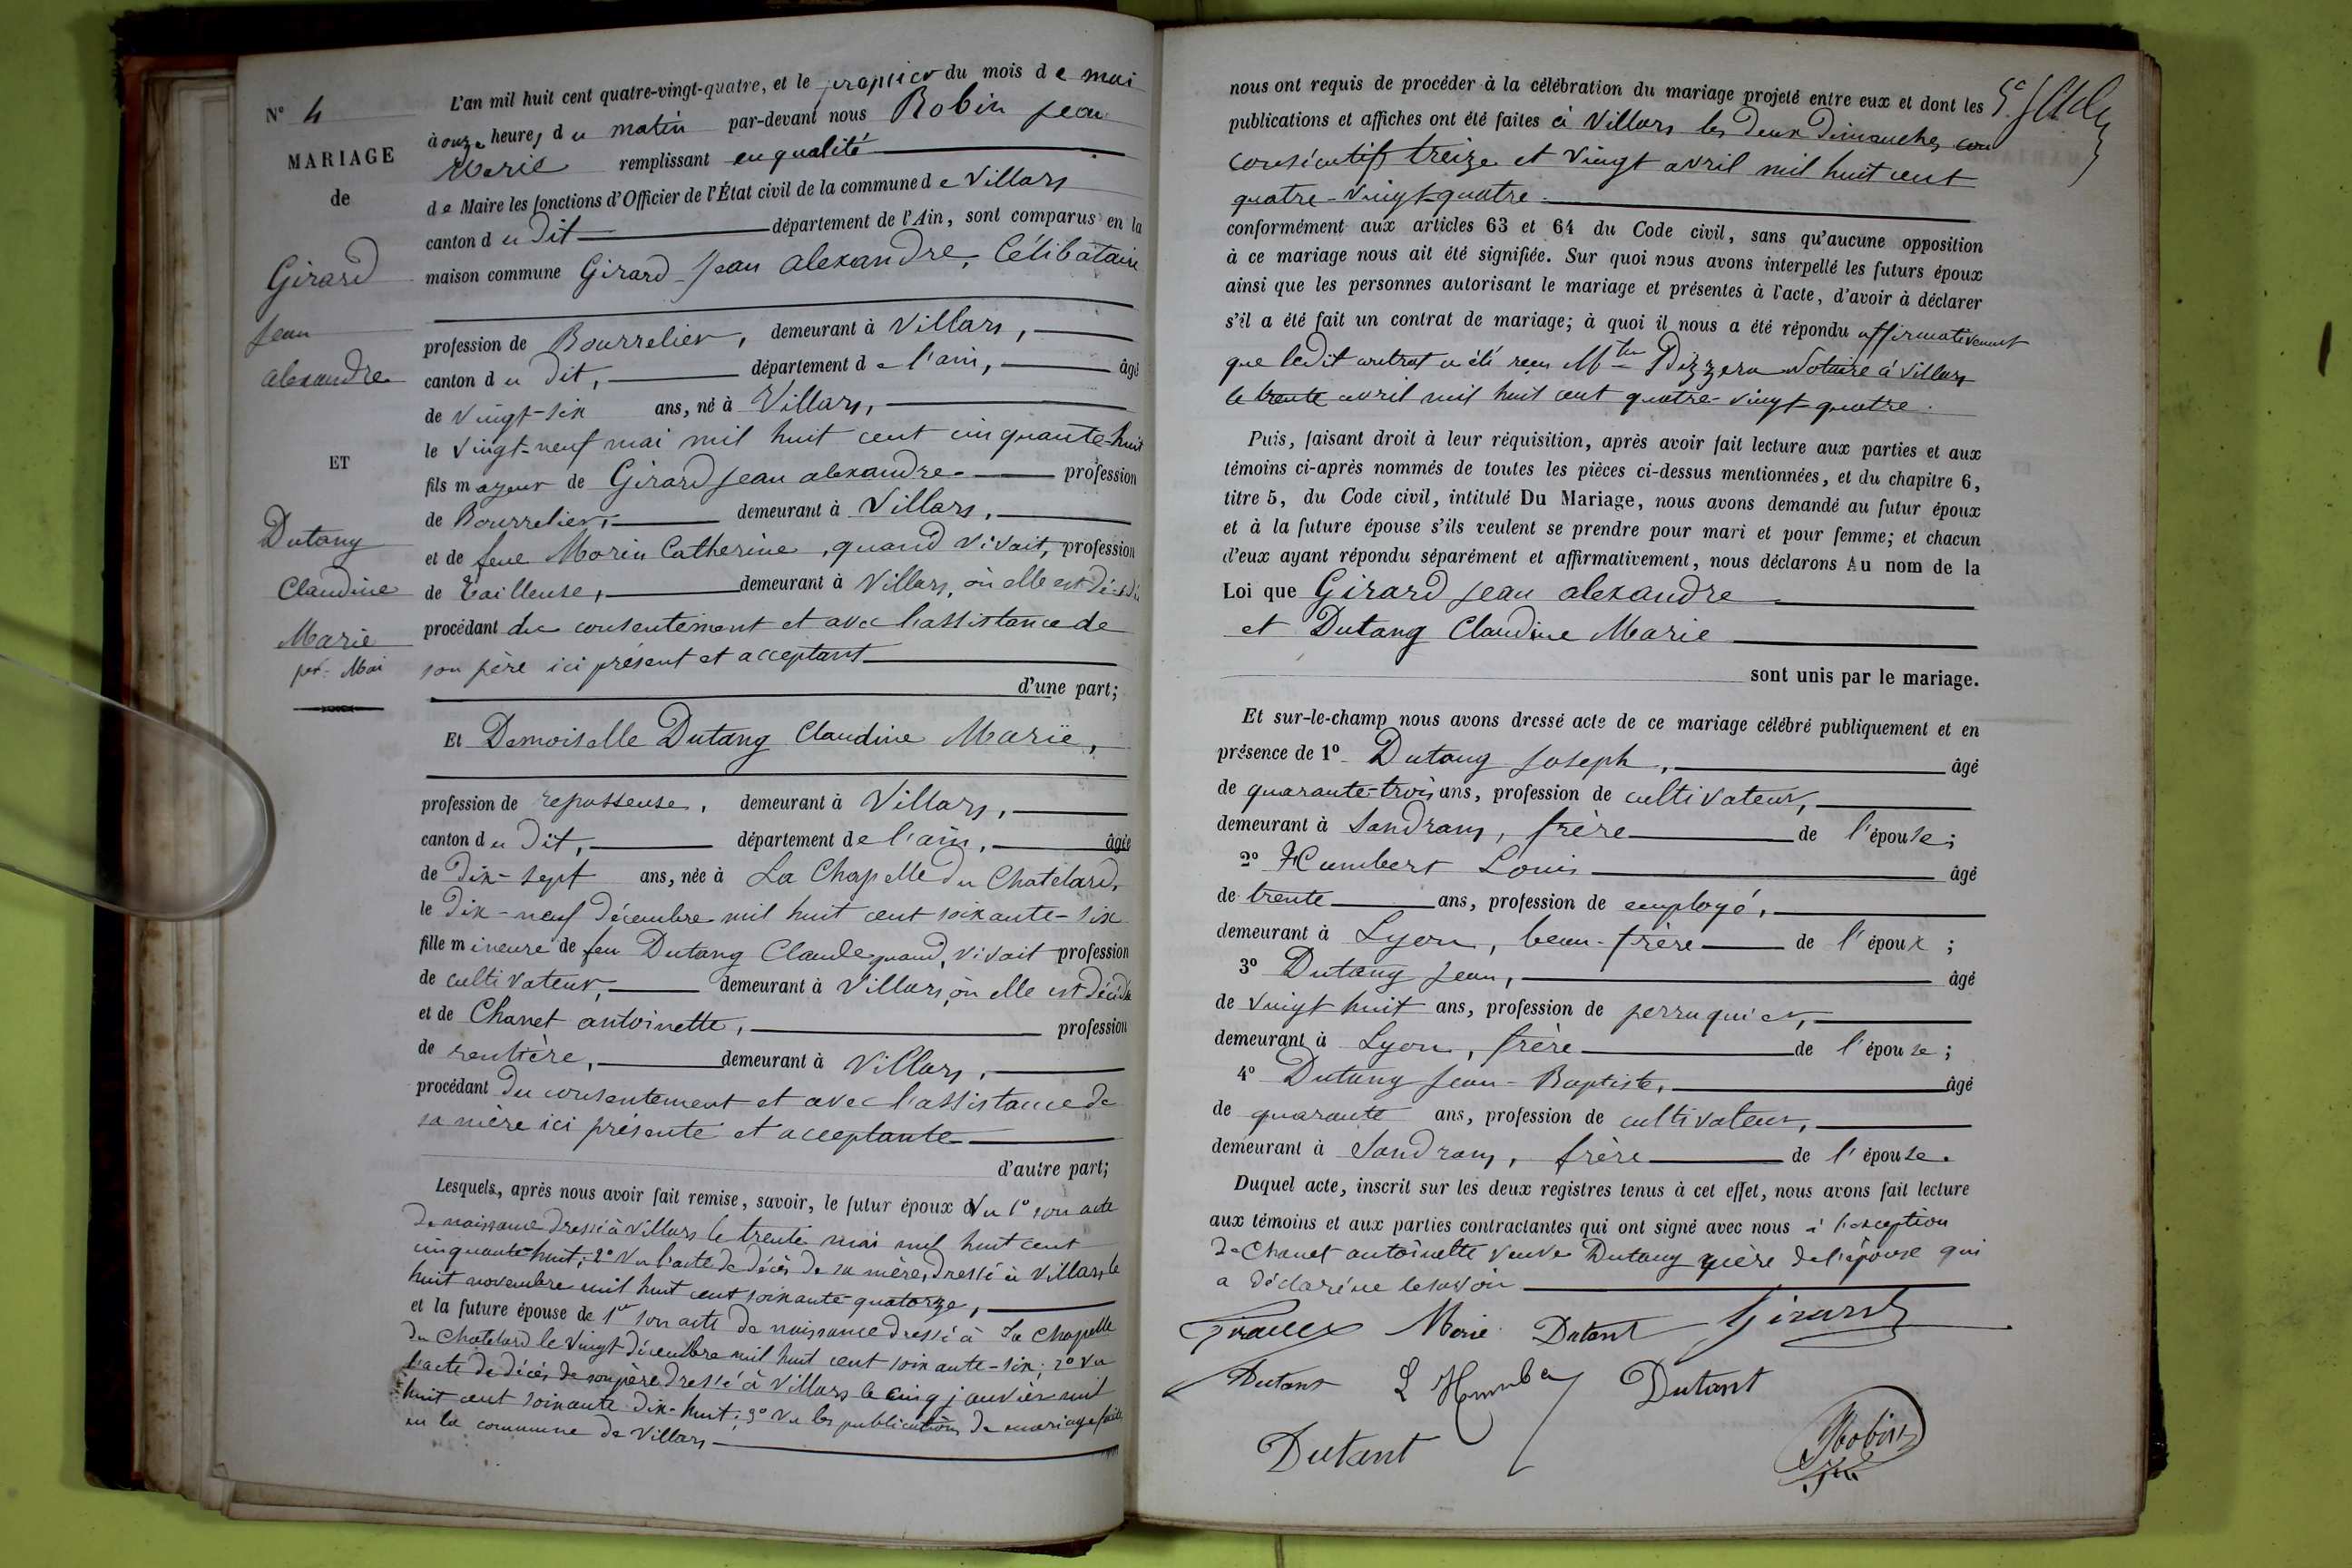 N° 4
MARIAGE
de
Girard
Jean
alexandre
ET
Dutang
Claudine
Marie
per. Mai
L'an mil huit cent quatre-vingt-quatre, et le premier du mois de mai
à onze heures du matin par-devant nous Robin Jean
Marie remplissant en qualité
de Maire les fonctions d'Officier de l'État civil de la commune de Villars
canton du dit département de l'Ain, sont comparus en la
maison commune Girard Jean alexandre, Célibataire
profession de Bourrelier, demeurant à Villars,
canton du dit, département de l'ain, âgé
de vingt-six ans, né à Villars,
le vingt-neuf mai mil huit cent cinquante-huit
fils mageur de Girard Jean alexandre profession
de Bourrelier, demeurant à Villars,
et de feue Morin Catherine, quand vivait, profession
de tailleuse, demeurant à Villars, où elle est décédée
procédant du consentement et avec l'assistance de
son père ici présent et acceptant
d'une part;
Et Demoiselle Dutang Claudine Marie,
profession de repasseuse, demeurant à Villars,
canton du dit, département de l'ain, âgée
de dix-sept ans, née à La Chapelle du Chatelard,
le dix-neuf décembre mil huit cent soixante-six
fille mineure de feu Dutang Claude quand, vivait profession
de cultivateur, demeurant à Villars, où elle est décédée
et de Chanet antoinette, profession
de rentière, demeurant à Villars,
procédant du consentement et avec l'assistance de
sa mère ici présente et acceptante
d'autre part;
Lesquels, après nous avoir fait remise, savoir, le futur époux Vu 1° son acte
de naissance dressé à Villars le trente mai mil huit cent
cinquante-huit; 2° Vu l'acte de décès de sa mère, dressé à Villars, le
huit novembre mil huit cent soixante-quatorze,
et la future épouse de 1er son acte de naissance dressé à La Chapelle
du Chatelard le vingt décembre mil huit cent soixante-six; 2° Vu
l'acte de décès de son père dressé à Villars le cinq janvier mil
huit cent soixante dix-huit; 3° Vu les publications de mariage faites
en la commune de Villars
nous ont requis de procéder à la célébration du mariage projeté entre eux et dont les
publications et affiches ont été faites à Villars les deux dimanches con
consécutifs treize et vingt avril mil huit cent
quatre-vingt-quatre.
conformément aux articles 63 et 64 du Code civil, sans qu'aucune opposition
à ce mariage nous ait été signifiée. Sur quoi nous avons interpellé les futurs époux
ainsi que les personnes autorisant le mariage et présentes à l'acte, d'avoir à déclarer
s'il a été fait un contrat de mariage; à quoi il nous a été répondu affirmativement
que ledit contrat a été reçu Mtre Notaire à Villars
le trente avril mil huit cent quatre-vingt-quatre.
Puis, faisant droit à leur réquisition, après avoir fait lecture aux parties et aux
témoins ci-après nommés de toutes les pièces ci-dessus mentionnées, et du chapitre 6,
titre 5, du Code civil, intitulé Du Mariage, nous avons demandé au futur époux
et à la future épouse s'ils veulent se prendre pour mari et pour femme; et chacun
d'eux ayant répondu séparément et affirmativement, nous déclarons Au nom de la
Loi que Girard Jean alexandre
et Dutang Claudine Marie
sont unis par le mariage.
Et sur-le-champ nous avons dressé acte de ce mariage célébré publiquement et en
présence de 1° Dutang Joseph, âgé
de quarante-trois ans, profession de cultivateur,
demeurant à Sandrans, frère de l'épouse;
2° Humbert Louis âgé
de trente ans, profession de employé,
demeurant à Lyon, beau-frère de l'époux;
3° Dutang Jean, âgé
de vingt huit ans, profession de perruquier,
demeurant à Lyon, frère de l'épouse;
4° Dutang Jean-Baptiste, âgé
de quarante ans, profession de cultivateur,
demeurant à Sandrans, frère de l'épouse.
Duquel acte, inscrit sur les deux registres tenus à cet effet, nous avons fait lecture
aux témoins et aux parties contractantes qui ont signé avec nous à l'exception
de Chanet antoinette veuve Dutang mère de l'épouse qui
a déclaré ne le savoir
Marie Dutant Girard
Dutant L Humbe Dutant
Dutant
Robin